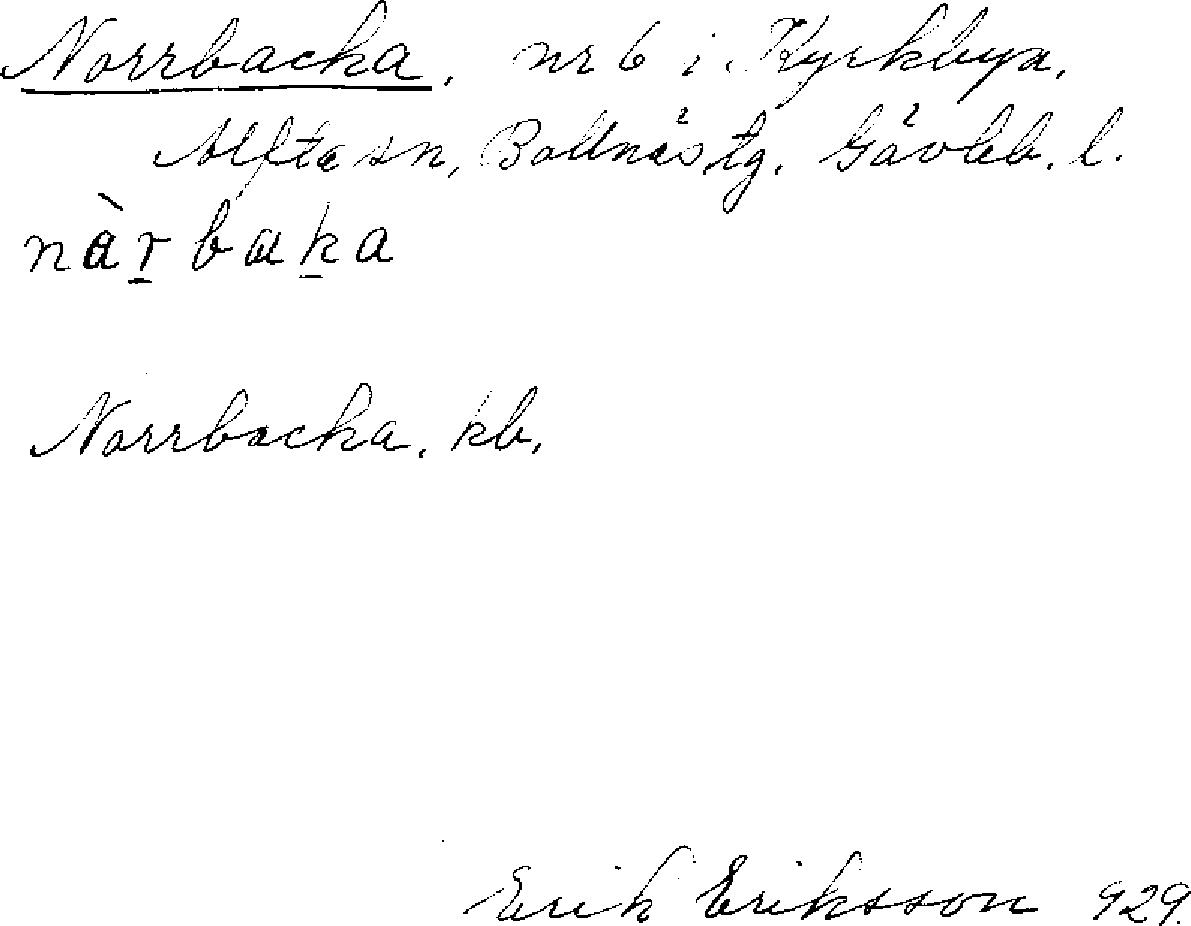 Norrbacka. nr 6 i Kyrkbyn,
Alfta sn, Bollnäs tg. Gävleb. l.
nàr̠baḵa
Norrbacka. kb.
Erik Eriksson 929.